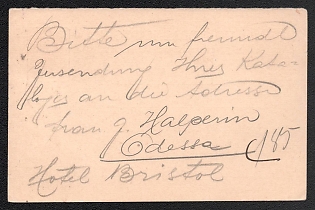 Bitte um freundl
Zusendung Ihres Kata-
loges an die Adresse
frau J. Halperin
Odessa 185
Hotel Bristol